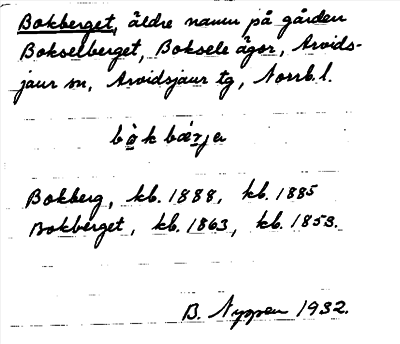 Bokberget, äldre namn på gården
Bokselberget, Boksele ägor, Arvids-
jaur sn, Arvidsjaur tg, Norrb. l.
bò̱k bæ̀rja
Bokberg, kb. 1888, kb. 1885
Bokberget, kb. 1863, kb. 1853.
B. Nyppen 1932.